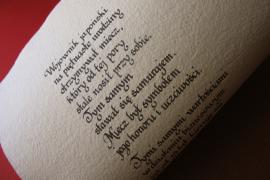 Wojownik japoński
na piętnaste urodziny
otrzymywał miecz,
który od tej pory
stale nosił przy sobie.
Tym samym
stawał się samurajem.
Miecz był symbolem
jego honoru i uczciwości.
Tymi samymi wartościami